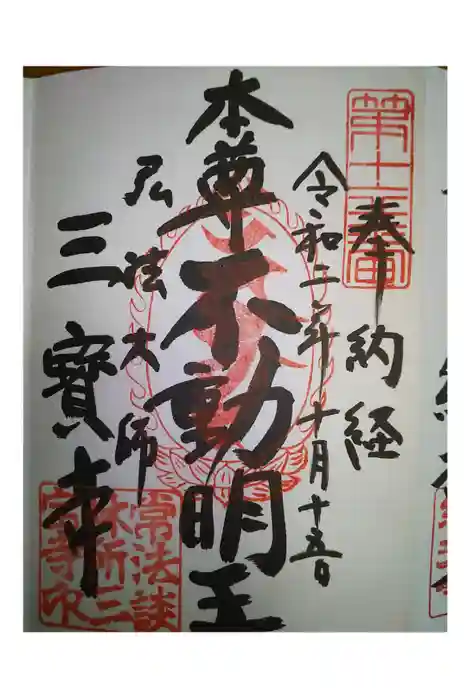 奉納経
令和二年十月十五日
本尊不動明王
弘法大師
三寳寺
第十
常法談